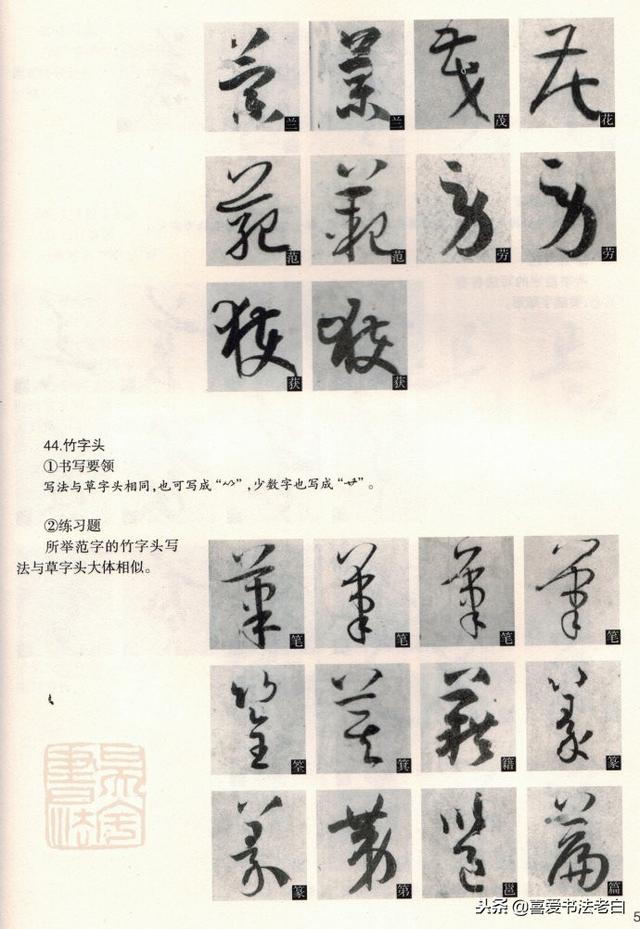 兰 兰 茂 花
范 范 劳 劳
获 获
44.竹字头
①书写要领
写法与草字头相同,也可写成“”,少数字也写成“”。
②练习题
所举范字的竹字头写
法与草字头大体相似。
笔 笔 笔 笔
筌 箕 籍 篆
篆 第 篇
書法
头条@喜爱书法老白
5